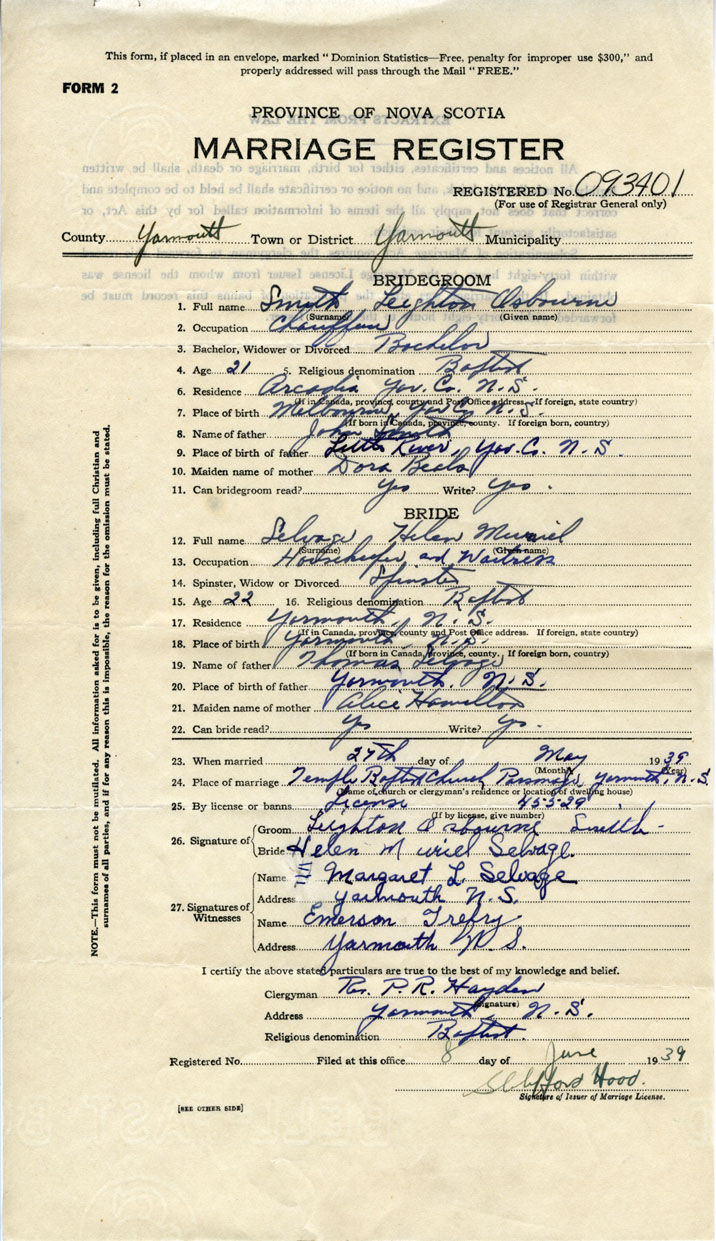 This form, if placed in an envelope, marked "Dominion Statistics—Free, penalty for improper use $300," and
properly addressed will pass through the Mail "FREE."
FORM 2
PROVINCE OF NOVA SCOTIA
MARRIAGE REGISTER
REGISTERED No. 093401
(For use of Registrar General only)
County Yarmouth Town or District Yarmouth Municipality
BRIDEGROOM
1. Full name Smith Leighton Osbourne
(Surname) (Given name)
2. Occupation Chauffeur
3. Bachelor, Widower or Divorced Bachelor
4. Age 21 5. Religious denomination Baptist
6. Residence Arcadia Yar. Co. N.S.
(If in Canada, province, county and Post Office address. If foreign, state country)
7. Place of birth Melbourne, Yar Co. N.S.
(If born in Canada, province, county. If foreign born, country)
8. Name of father John Smith
9. Place of birth of father Little River, Yar. C. N.S.
10. Maiden name of mother Dora Beals
11. Can bridegroom read? Yes Write? Yes.
BRIDE
12. Full name Selvage Helen Muriel
(Surname) (Given name)
13. Occupation Housekeeper and Waitress
14. Spinster, Widow or Divorced Spinster
15. Age 22 16. Religious denomination Baptist
17. Residence Yarmouth, N.S.
(If in Canada, province, county and Post Office address. If foreign, state country)
18. Place of birth Yarmouth, N.S.
(If born in Canada, province, county. If foreign born, country)
19. Name of father Thomas Selvage
20. Place of birth of father Yarmouth, N.S.
21. Maiden name of mother Alice Hamilton
22. Can bride read? Yes Write? Yes.
23. When married 27th day of May 1939
(Month) (Year)
24. Place of marriage Temple Baptist Church Parsonage, Yarmouth, N.S.
(Name of church or clergyman's residence or location of dwelling house)
25. By license or banns License 45529
(If by license, give number)
26. Signature of Groom Leighton Osbourne Smith
Bride Helen Muriel Selvage.
27. Signatures of Witnesses Name Margaret L Selvage
Address Yarmouth N.S.
Name Emerson Trefry
Address Yarmouth N.S.
I certify the above stated particulars are true to the best of my knowledge and belief.
Clergyman Rev. P. R. Hayden
(Signature)
Address Yarmouth, N.S.
Religious denomination Baptist.
Registered No. Filed at this office 8 day of June 1939
Clifford Hood.
Signature of Issuer of Marriage License.
[SEE OTHER SIDE]
NOTE.—This form must not be mutilated. All information asked for is to be given, including full Christian and
surnames of all parties, and if for any reason this is impossible, the reason for the omission must be stated.